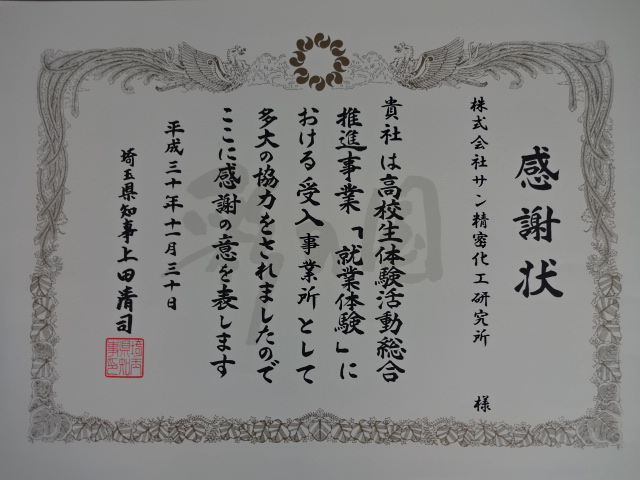 感謝状
株式会社サン精密化工研究所 様
貴社は高校生体験活動総合
推進事業「就業体験」に
おける受入事業所として
多大の協力をされましたので
ここに感謝の意を表します
平成三十年十一月三十日
埼玉県知事 上田清司
埼玉
県知
事印